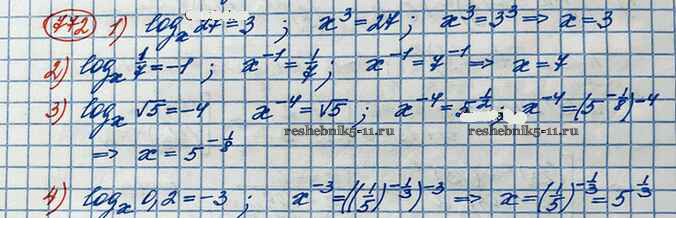 772 1) log_x 27 = 3 ; x^3 = 27 ; x^3 = 3^3 ⇒ x = 3
2) log_x 1/7 = -1 ; x^-1 = 1/7 ; x^-1 = 7^-1 ⇒ x = 7
3) log_x √5 = -4 x^-4 = √5 ; x^-4 = 5^1/2 ; x^-4 = (5^-1/8)^-4
reshebnik5-11.ru reshebnik5-11.ru
⇒ x = 5^-1/8
4) log_x 0,2 = -3 ; x^-3 = ((1/5)^-1/3)^-3 ⇒ x = (1/5)^-1/3 = 5^1/3